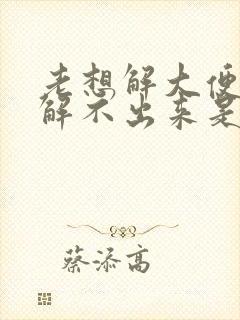 老想解大便
解不出来是
蔡添高